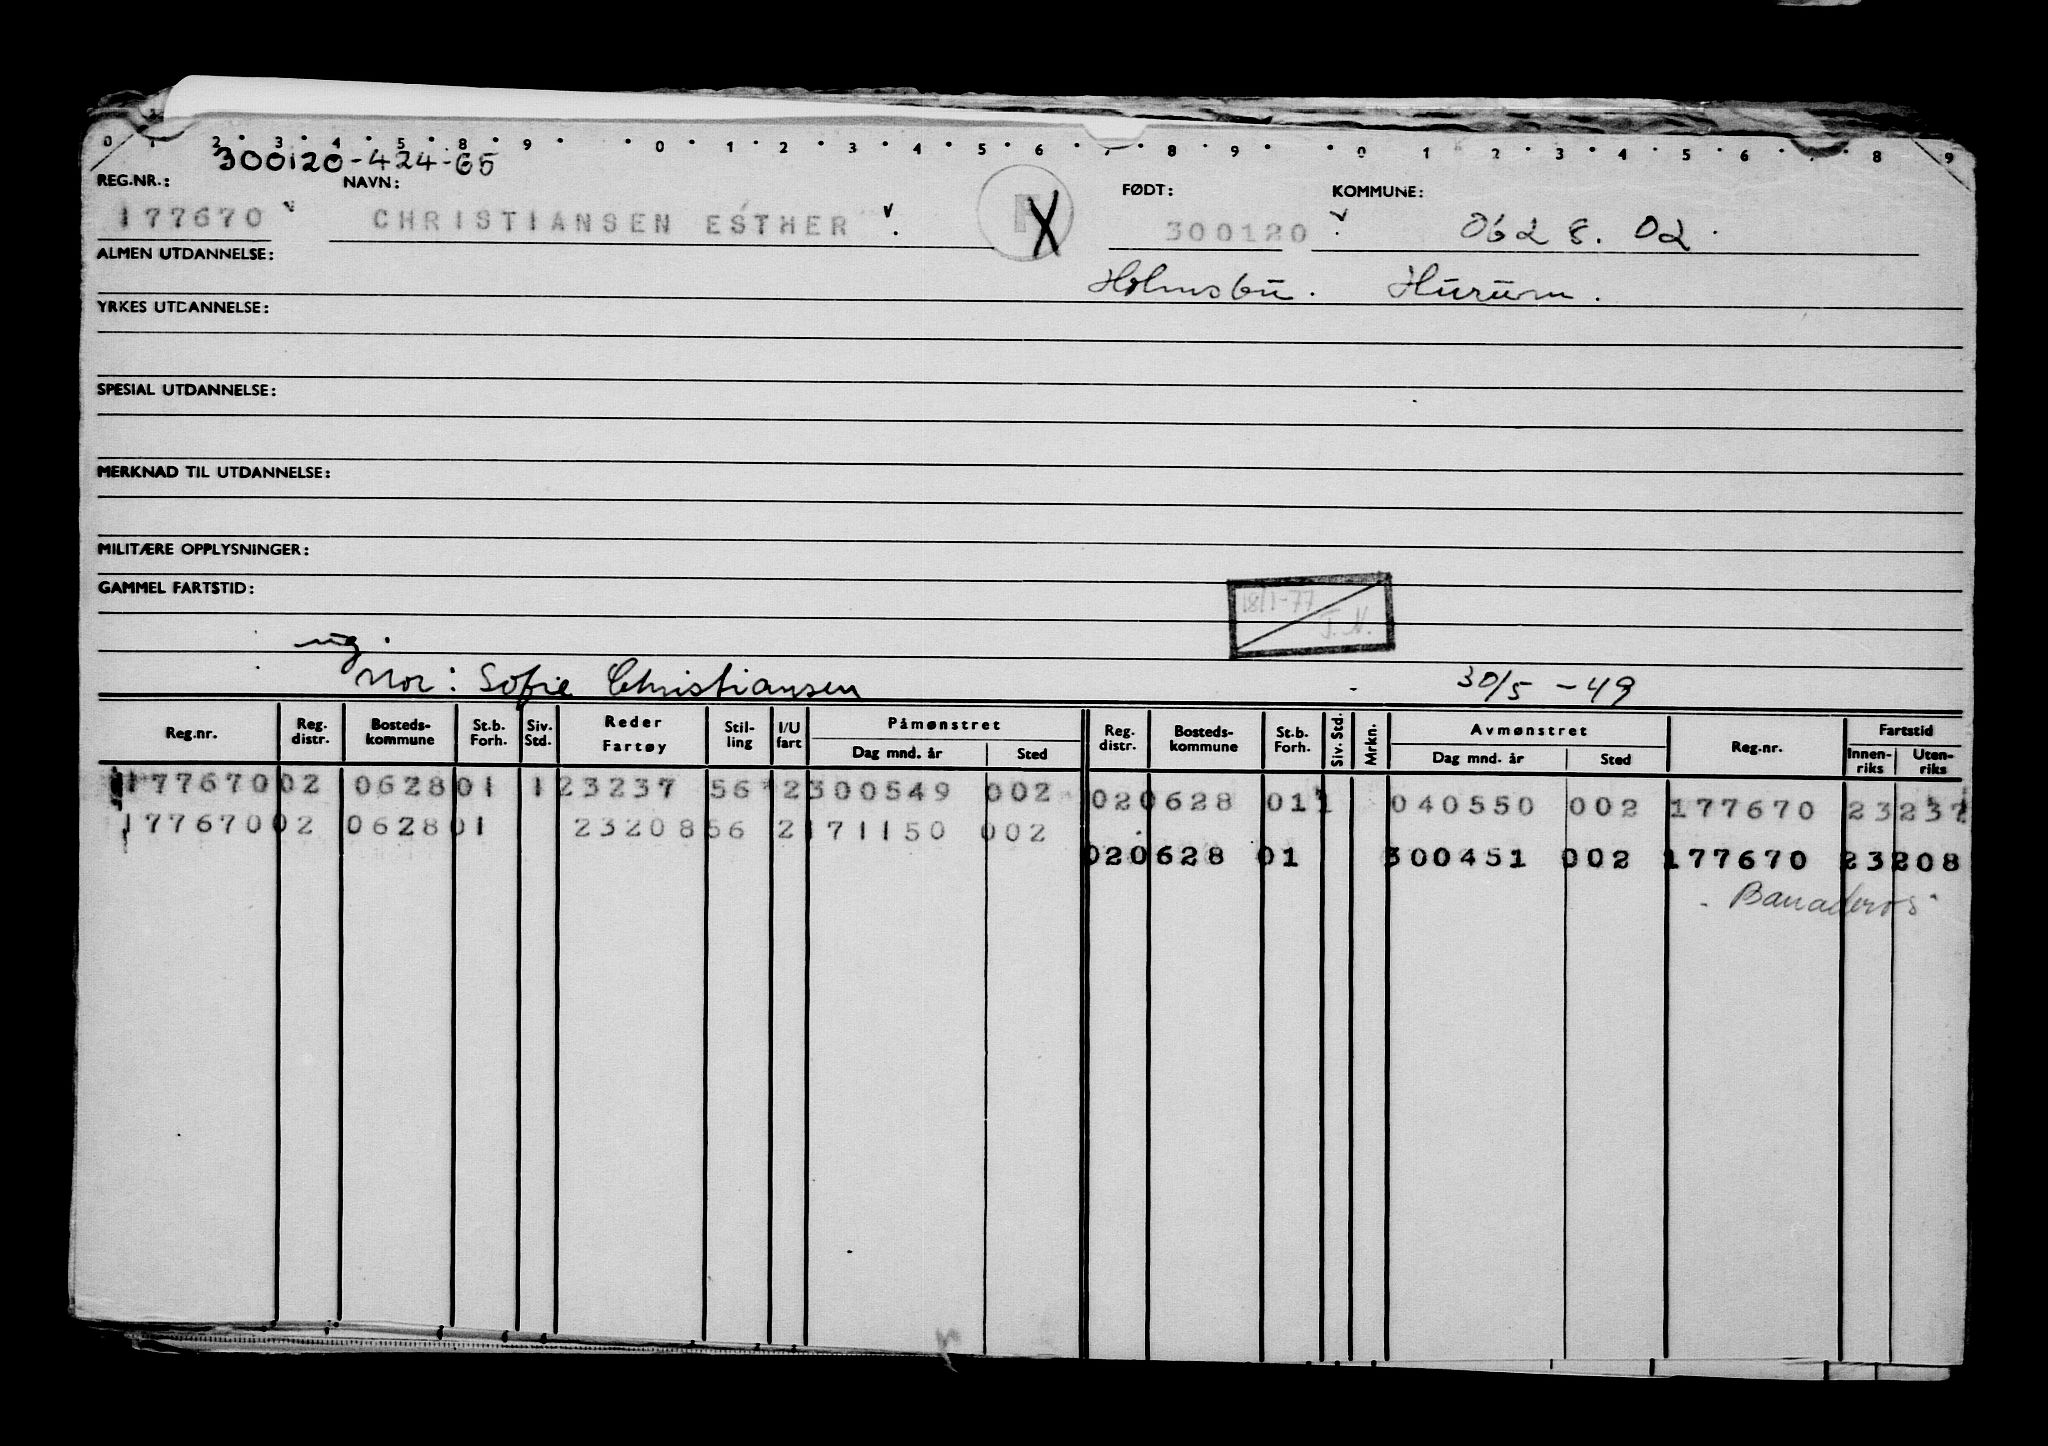 0 1 2 3 4 5 8 9 0 1 2 3 4 5 6 7 8 9 0 1 2 3 4 5 6 8 9
300120-424-65
REG.NR.: NAVN: FØDT: KOMMUNE:
177670 v CHRISTIANSEN ESTHER v. X 300120 v 0628.02.
ALMEN UTDANNELSE:
Holmsbu. Hurum.
YRKES UTDANNELSE:
SPESIAL UTDANNELSE:
MERKNAD TIL UTDANNELSE:
MILITÆRE OPPLYSNINGER:
GAMMEL FARTSTID:
18/1-77
T.N.
ug.
Mor: Sofie Christiansen 30/5 -49
Reg.nr. Reg. distr. Bosteds- kommune St.b. Forh. Siv. Std. Reder Fartøy Stil- ling I/U fart Påmønstret Dag mnd. år Sted Reg. distr. Bosteds- kommune St.b. Forh. Siv. Std. Mrkn. Avmønstret Dag mnd. år Sted Reg.nr. Fartstid Innen- riks Uten- riks
177670 02 0628 01 1 23237 56 2 300549 002 02 0628 01 1 040550 002 177670 23237
177670 02 0628 01 23208 56 2 171150 002
02 0628 01 300451 002 177670 23208
Banaderos